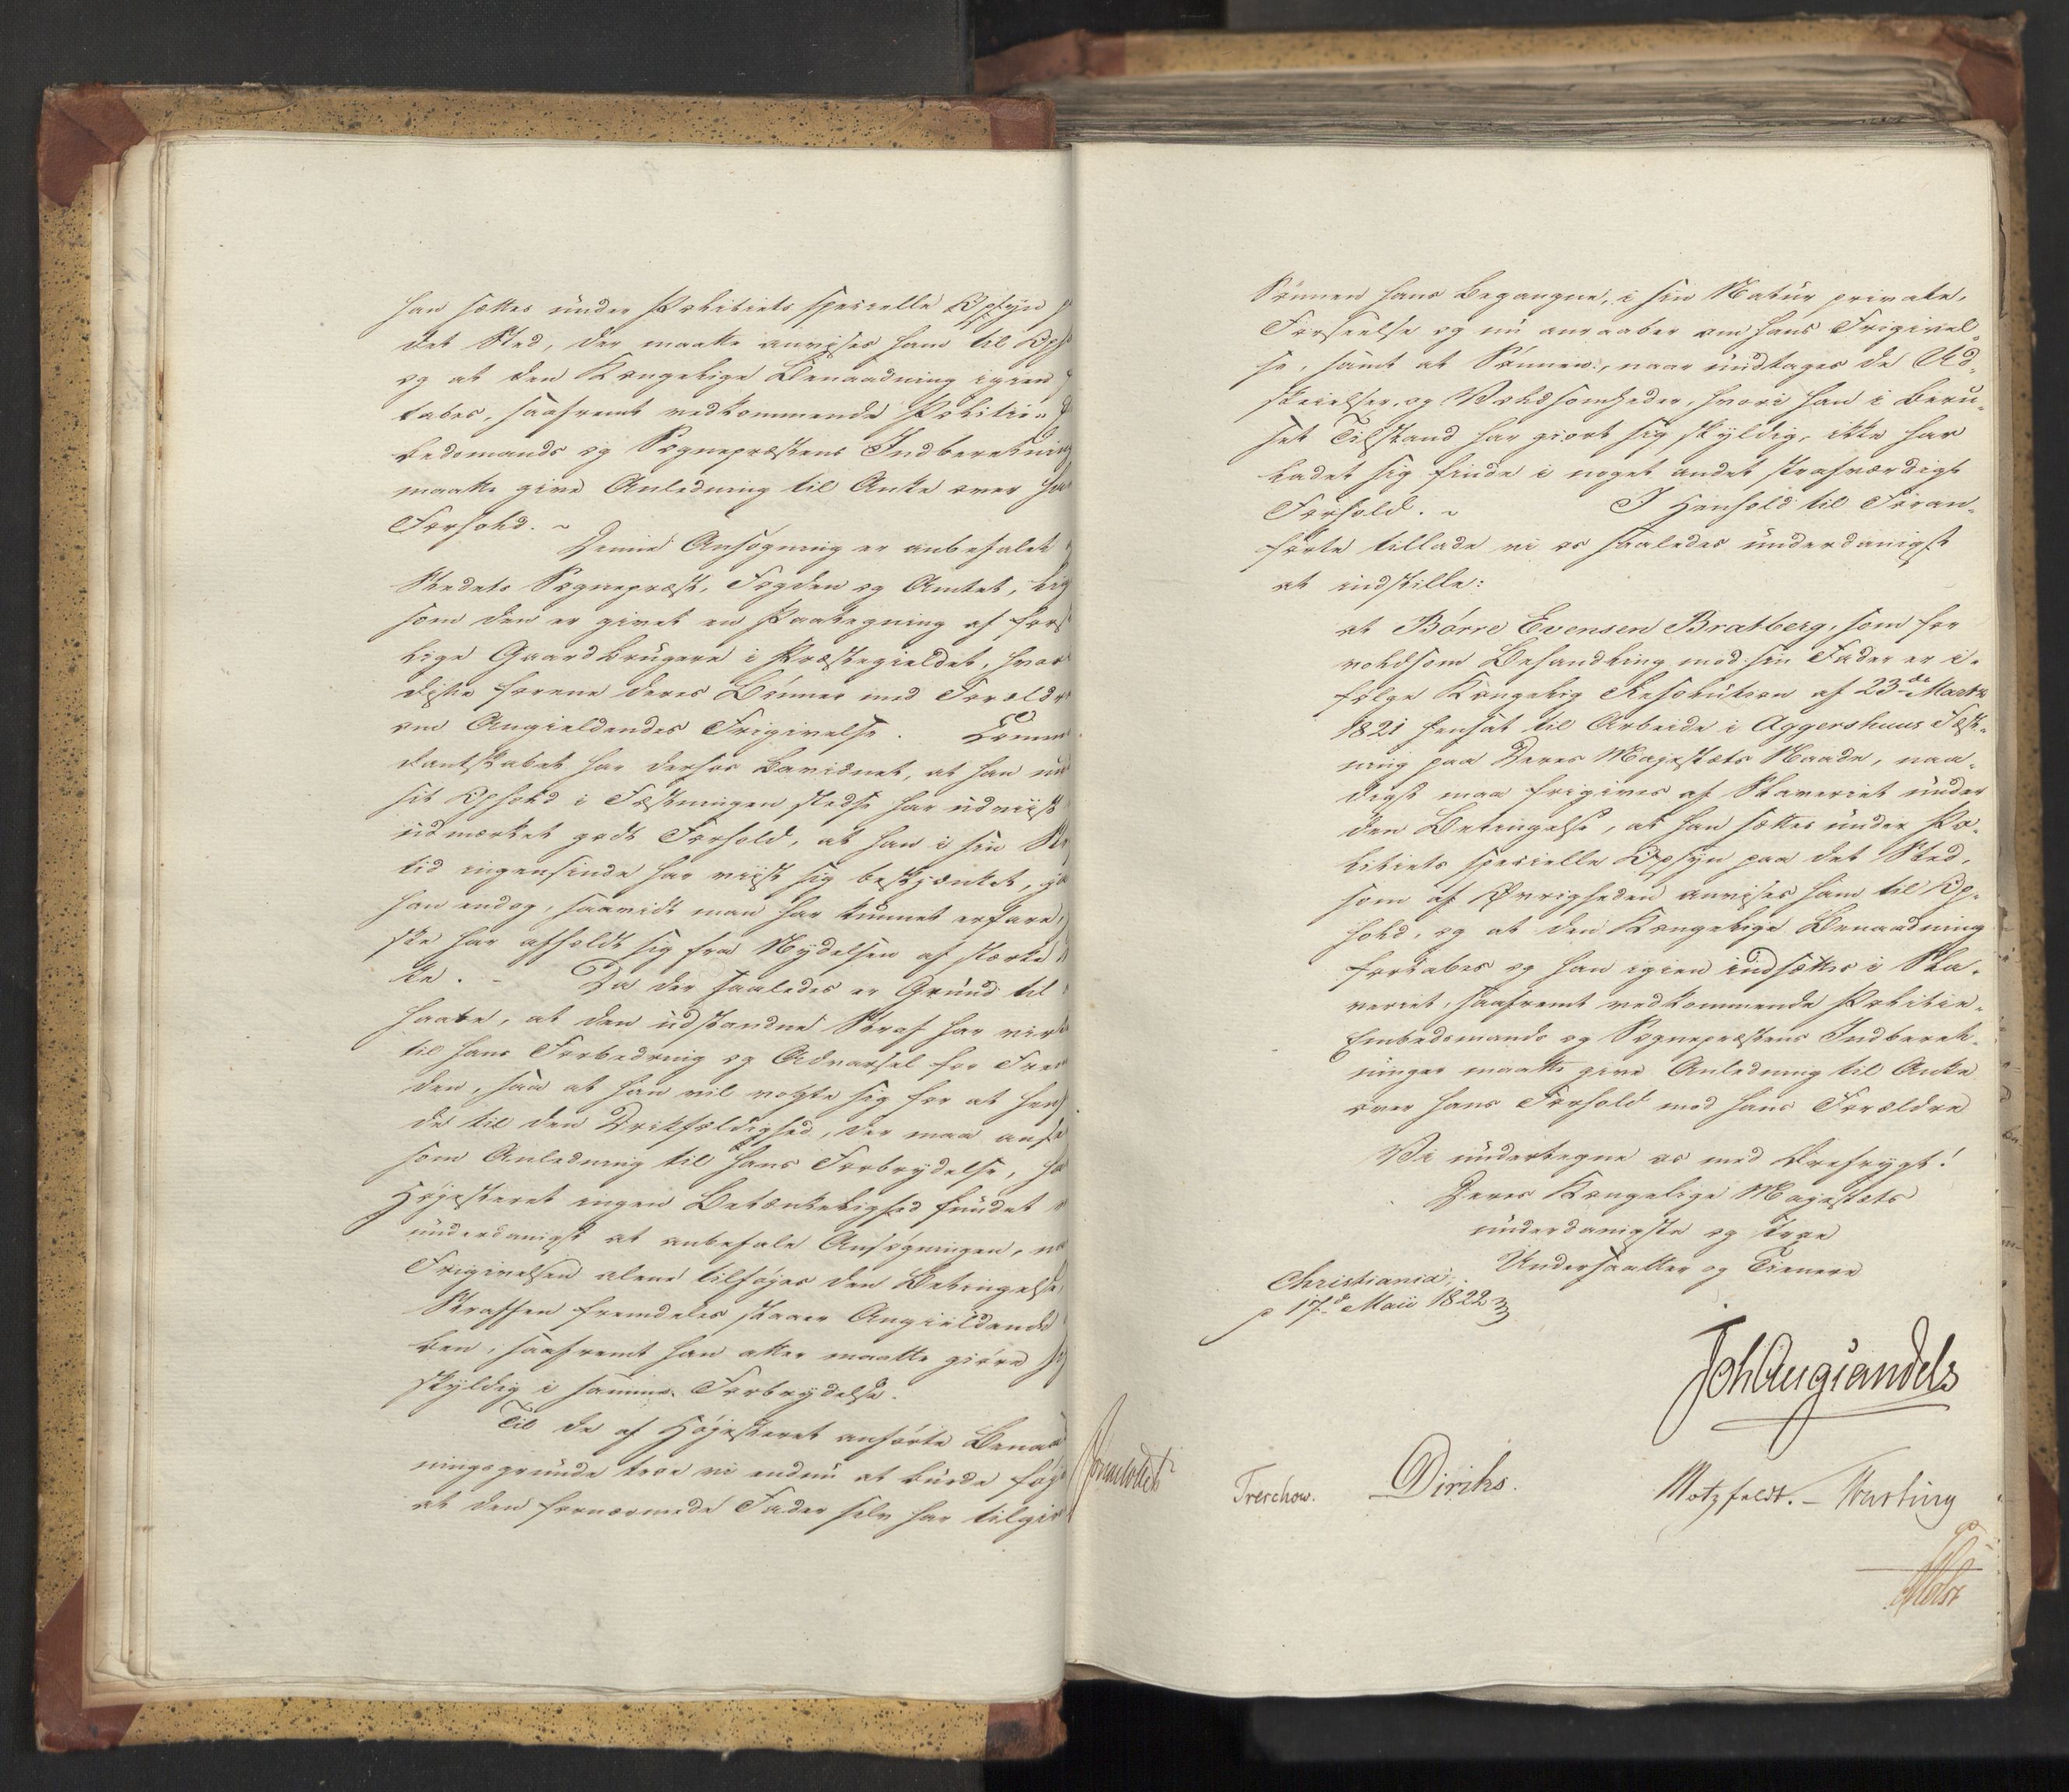 han sættes under Politiets specielle Opsyn p
det Sted, der maatte anvises ham til Oph
og at den Kongelige Benaadning igien
tabes, saafremt vedkommende Politie-
bedsmands og Sognepræstens Indberetning
maatte give Anledning til Anke over han
Forhold. ~
Denne Ansøgning er anbefalet
Stedets Sognepræst, Fogden og Amtet, lig
som den er givet en Paategning af fors
lige Gaardbrugere i Præstegieldet, hvor
disse forene deres Bønner med Forældre
om Angieldendes Frigivelse. Comman
dantskabet har derhos bevidnet, at han un
sit Ophold i Fæstningen stedse har udviist
udmærket godt Forhold, at han i sin Str
tid ingensinde har viist sig beskjænket, ja
han endog, saavidt man har kunnet erfare,
ske har afholdt sig fra Nydelsen af stærke D
ke. - Da der saaledes er Grund til
haabe, at den udstandne Straf har virk
til hans Forbedring og Advarsel for Frem
den, saa at han vil vogte sig for at hen
de til den Drikfældighed, der maa anse
som Anledning til hans Forbrydelse, ha
Højesteret ingen Betænkelighed fundet
underdanigst at anbefale Ansøgningen, na
Frigivelsen alene tilføjes den Betingelse
Straffen fremdeles staaer Angieldende
ben, saafremt han atter maatte giøre sig
skyldig i samme Forbrydelse.
Til de af Højesteret anførte Benaad
ningsgrunde troe vi endnu at burde føje
at den fornærmede Fader selv har tilgiv
Sønnen hans begangne, i sin Natur private,
Forseelse og nu anraaber om hans Frigivel-
se, samt at Sønnen, naar undtages de Ud-
skeielser, og Voldsomheder, hvori han i beru-
set Tilstand har giort sig skyldig, ikke har
ladet sig finde i noget andet strafværdigt
Forhold. ~ I Henhold til Foran-
førte tillade vi os saaledes underdanigst
at indstille:
at Börre Evensen Bratberg, som for
voldsom Behandling mod sin Fader er i-
følge Kongelig Resolution af 23de Marts
1821 hensat til Arbeide i Aggershuus Fæst-
ning paa Deres Majestæts Naade, naa-
digst maa frigives af Slaveriet under
den Betingelse, at han sættes under Po-
litiets specielle Opsyn paa det Sted,
som af Øvrigheden anvises ham til Op-
hold, og at den Kongelige Benaadning
fortabes og han igien indsættes i Sla-
veriet, saafremt vedkommende Politie-
Embedsmands og Sognepræstens Indberet-
ninger maatte give Anledning til Anke
over hans Forhold mod hans Forældre
Vi undertegne os med Ærefrygt!
Deres Kongelige Majestæts
underdanigste og troe
Undersaatter og Tienere
Christiania,
p 17de Maii 1822
Joh Aug Sandels
Sommerhielm
Treschow. Diriks. Motzfeldt. - Fasting
Holst